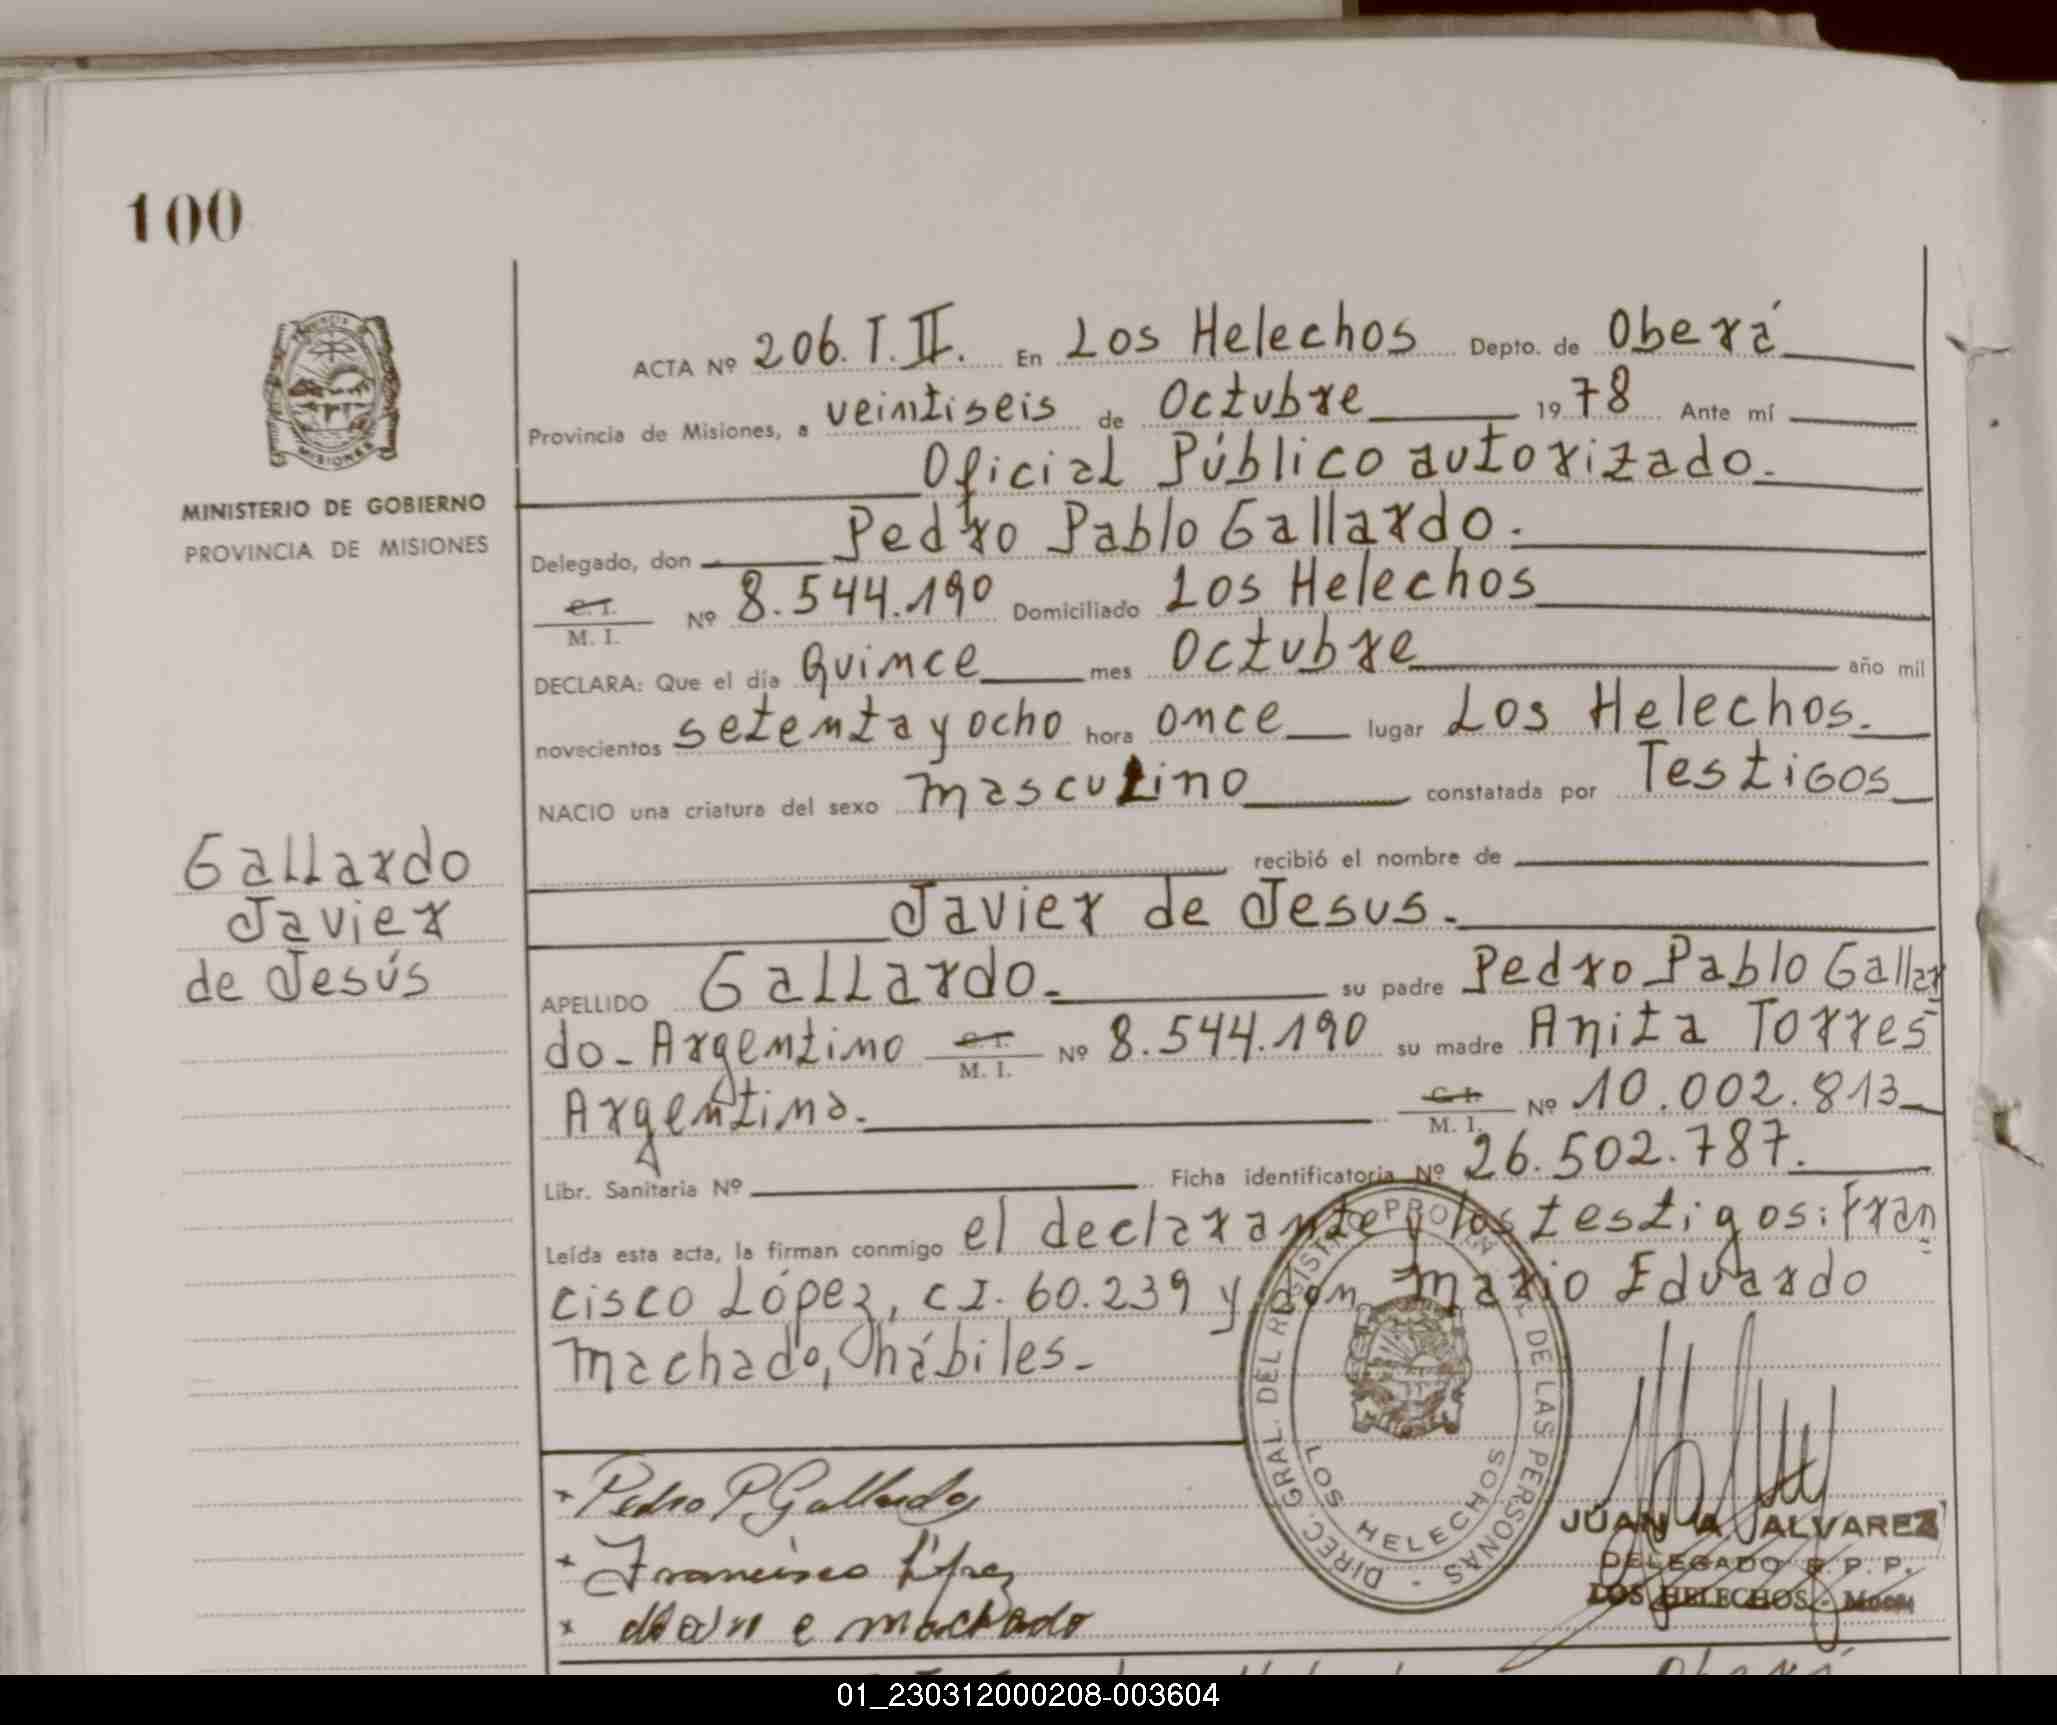 100
MINISTERIO DE GOBIERNO
PROVINCIA DE MISIONES
Gallardo
Javier
de Jesús
ACTA Nº 206. T. II. En Los Helechos Depto. de Oberá
Provincia de Misiones, a veintiseis de Octubre 1978 Ante mí
Oficial Público autorizado.
Delegado, don Pedro Pablo Gallardo.
C. I.
M. I. Nº 8.544.190 Domiciliado Los Helechos
DECLARA: Que el día Quince mes Octubre año mil
novecientos setenta y ocho hora once lugar Los Helechos.
NACIO una criatura del sexo masculino constatada por Testigos
recibió el nombre de
Javier de Jesus.
APELLIDO Gallardo. su padre Pedro Pablo Gallar
do - Argentino C. I. M. I. Nº 8.544.190 su madre Anita Torres
Argentina. C. I. M. I. Nº 10.002.813
Libr. Sanitaria Nº Ficha identificatoria Nº 26.502.787.
Leída esta acta, la firman conmigo el declarante y los testigos: Fran
cisco López, C I. 60.239 y don Mario Eduardo
Machado, hábiles.
DIREC. GRAL. DEL REGISTRO PROV. DE LAS PERSONAS -
LOS HELECHOS
Pedro P. Gallardo
Francisco López
e machado
JUAN A. ALVAREZ
DELEGADO R. P. P.
LOS HELECHOS -
01_230312000208-003604